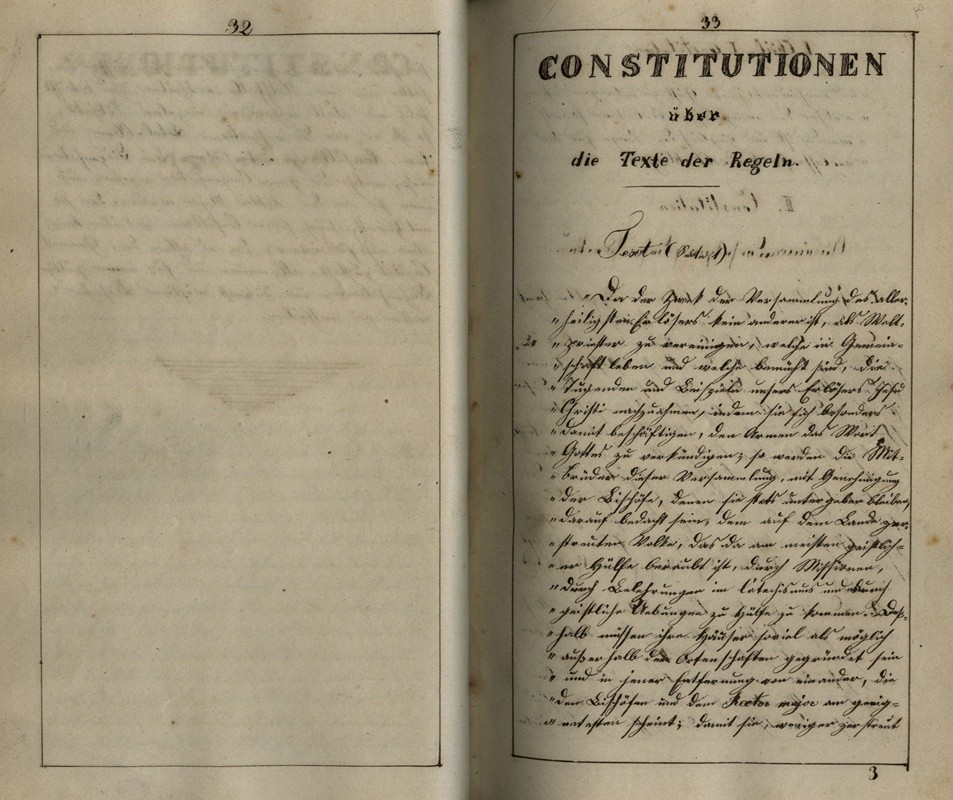 32
33
CONSTITUTIONEN
über
die Texte der Regeln.
Text
„Da der Zweck der Versammlung des aller-
„heiligsten Erlösers kein anderer ist, als Welt-
„priester zu vereinigen, welche in Gemein-
„schaft leben und welche bemüht sind, die
„Tugenden und Beispiele unsers Erlösers Jesu
„Christi nachzuahmen, indem sie sich besonders
„damit beschäftigen, den Armen das Wort
„Gottes zu verkündigen; so werden die Mit-
„brüder dieser Versammlung, mit Genehmigung
„der Bischöfe, denen sie stets untergeben bleiben,
„darauf bedacht sein, dem auf dem Lande zer-
„streuten Volke, das da am meisten geistlich-
„er Hülfe beraubt ist, durch Missionen,
„durch Belehrungen im Catechismus und durch
„geistliche Uebungen zu Hülfe zu kommen. Deß-
„halb müssen ihre Häuser soviel als möglich
„außerhalb den Ortenschaften gegründet sein
„und in jener Entfernung von einander, die
„den Bischöfen und dem Rector major am geeig-
„netesten scheint; damit sie, weniger zerstreut
3